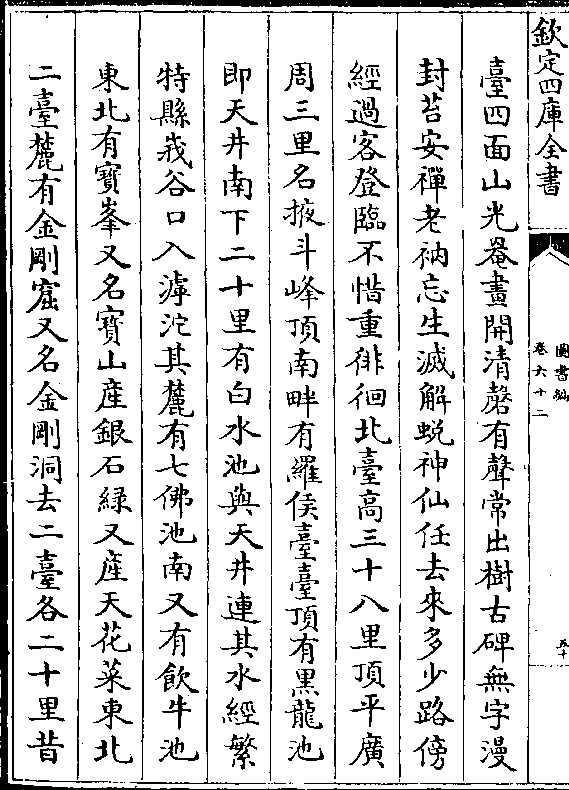 欽定四庫全書
圖書編
卷六十二
五十
臺四面山光罨畫開清磬有聲常出樹古碑無字漫
封苔安禪老衲忘生滅解蛻神仙任去來多少路傍
經過客登臨不惜重徘徊北臺高三十八里頂平廣
周三里名掖斗峰頂南畔有羅侯臺臺頂有黒龍池
即天井南下二十里有白水池與天井連其水經繁
特縣峩谷口入滹沱其麓有七佛池南又有飲牛池
東北有寳峯又名寳山産銀石緑又産天花菜東北
二臺麓有金剛窟又名金剛洞去二臺各二十里昔